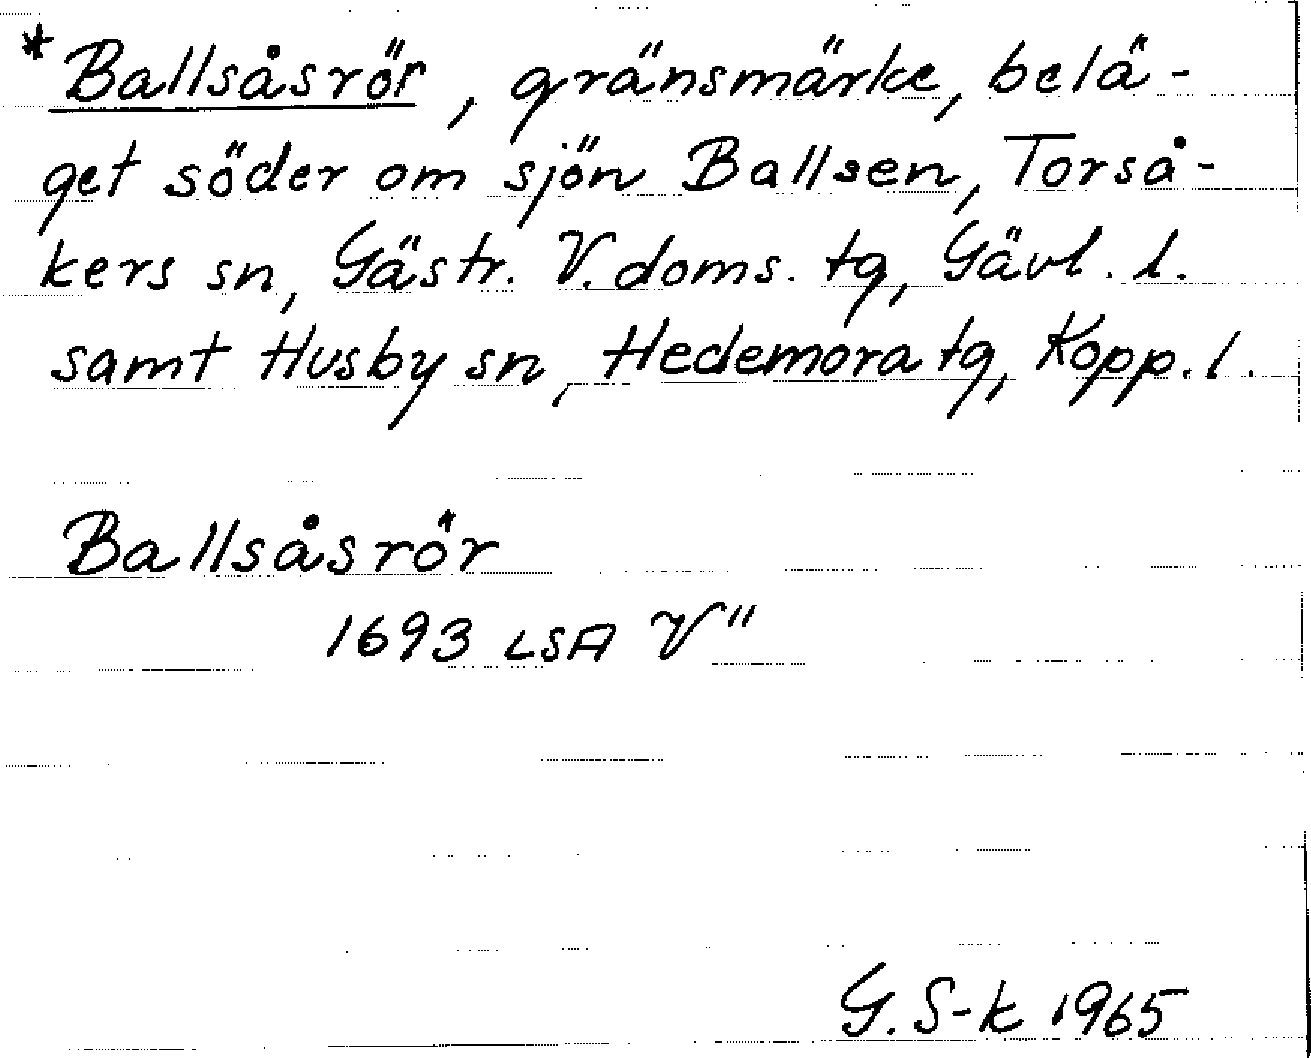 *Ballsåsrör, gränsmärke, belä-
get söder om sjön Ballsen, Torså-
kers sn, Gästr. V. doms. tg, Gävl. l.
samt Husby sn, Hedemora tg, Kopp. l.
Ballsåsrör
1693 LSA V"
G. S-k 1965